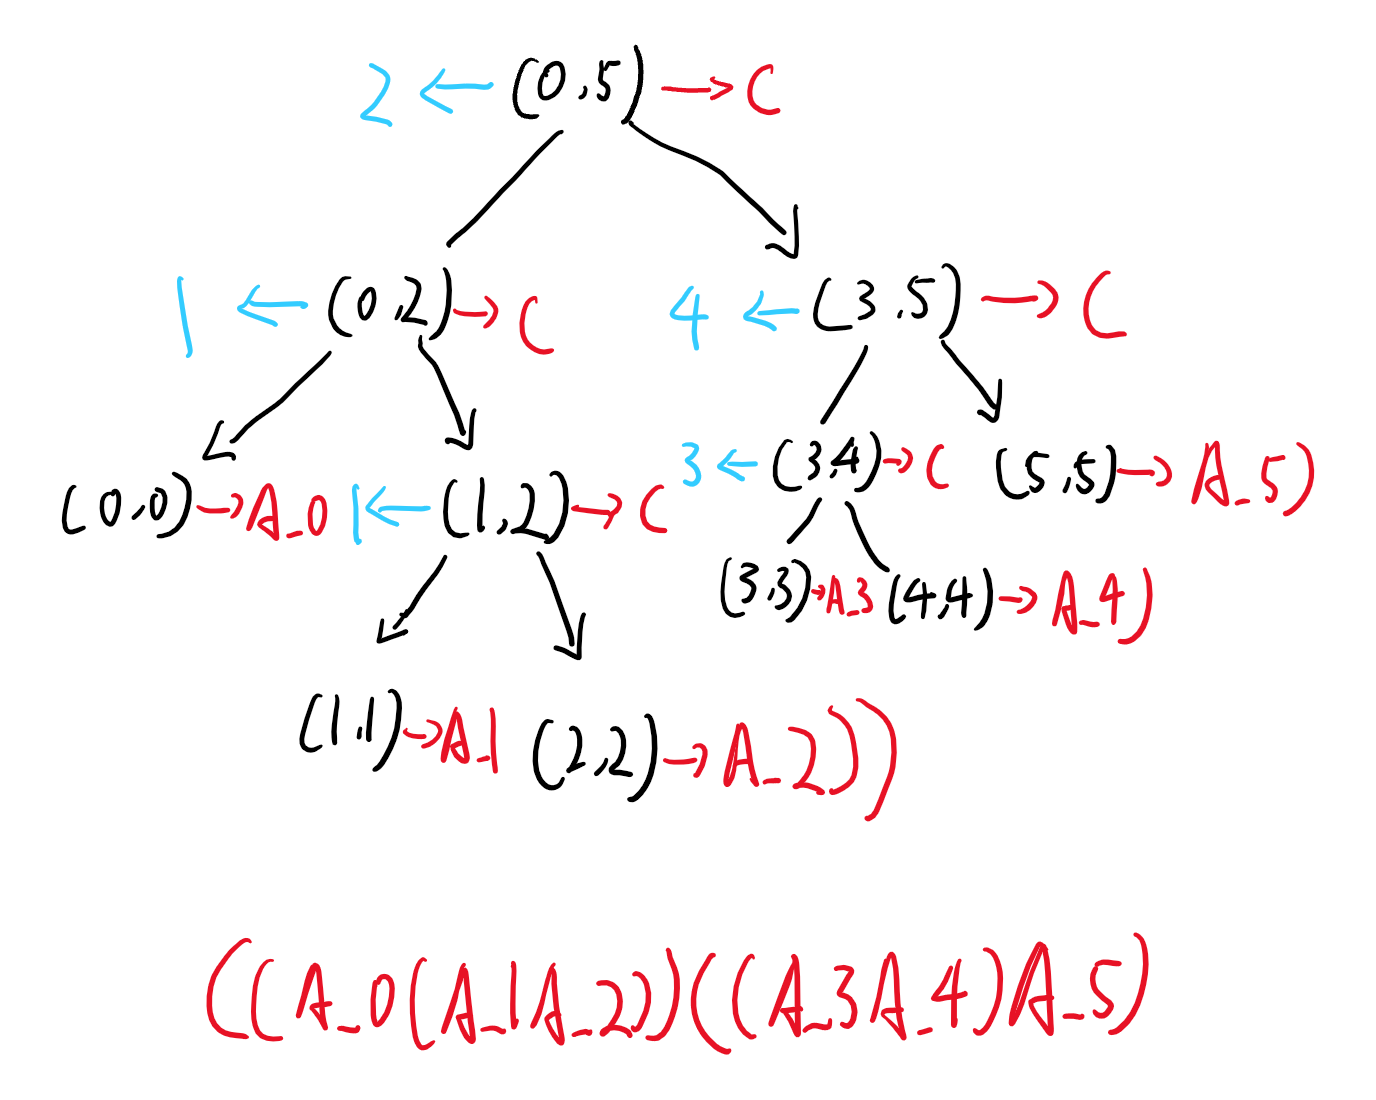 2 ← (0,5) → (
1 ← (0,2) → ( 4 ← (3,5) → (
(0,0) → A_0 1 ← (1,2) → ( 3 ← (3,4) → ( (5,5) → A_5)
(3,3) → A_3 (4,4) → A_4)
(1,1) → A_1 (2,2) → A_2))
((A_0(A_1A_2))((A_3A_4)A_5)